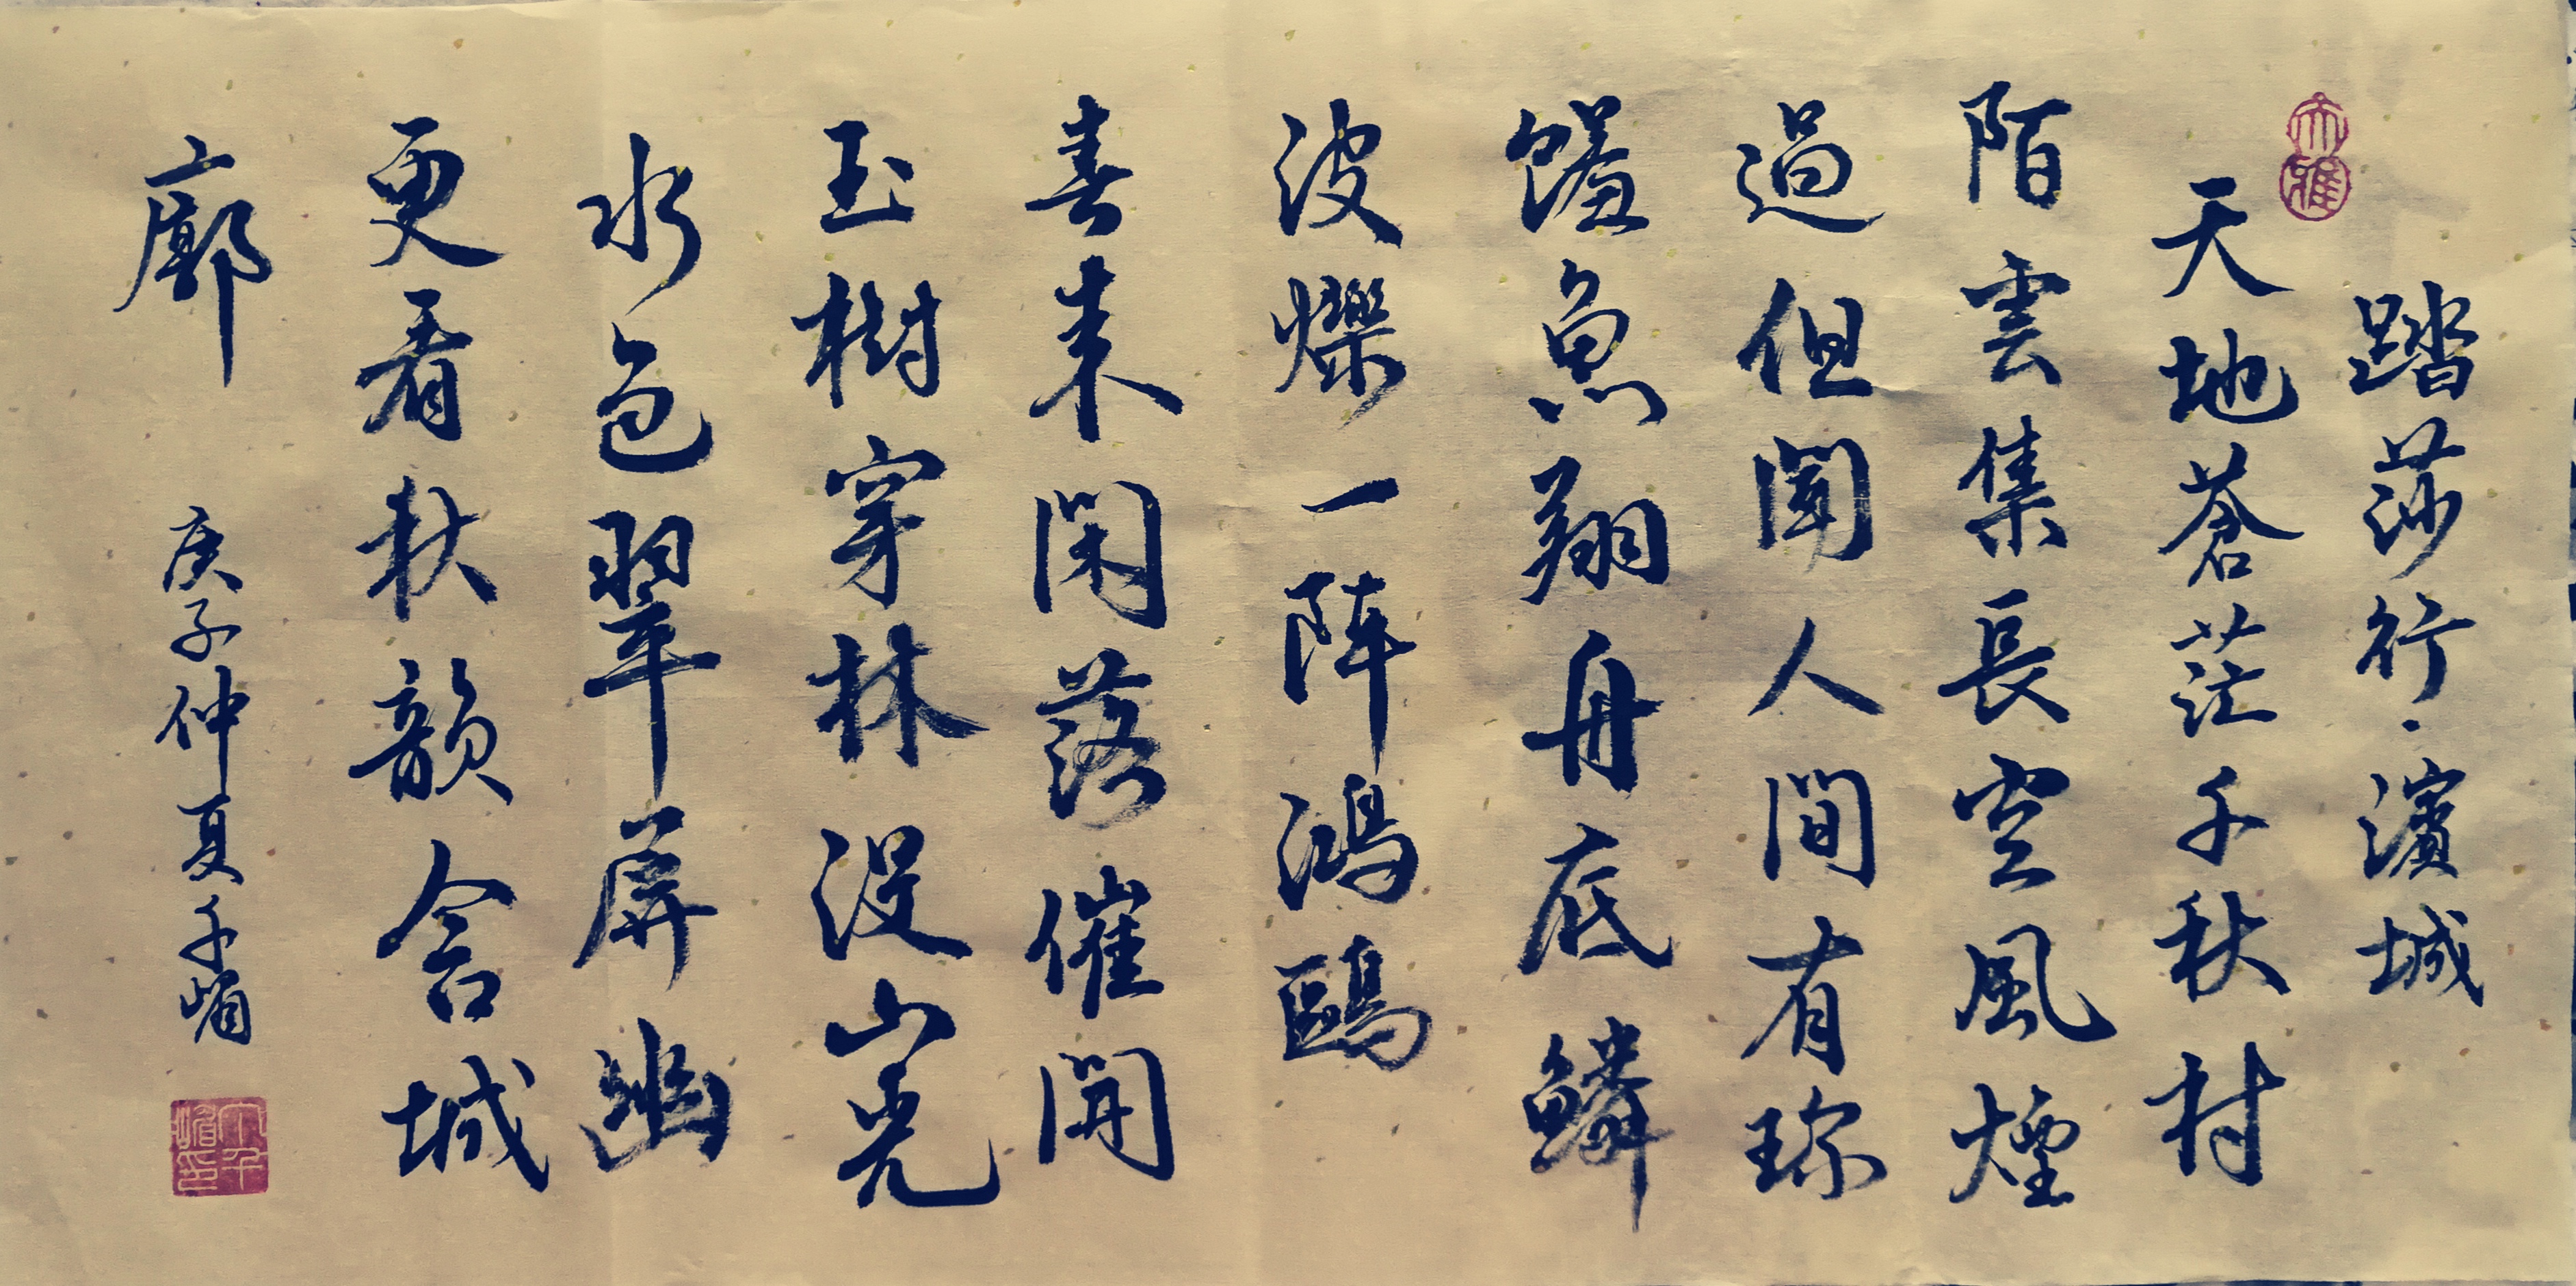 踏莎行·濱城
天地蒼茫千秋村
陌雲集長空風煙
過但聞人間有珍
饈魚翔舟底鱗
波爍一陣鴻鷗
春來閑落催開
玉樹穿林沒山光
水色翠屏幽
更看秋韻含城
廓
庚子仲夏千嵋
大雅